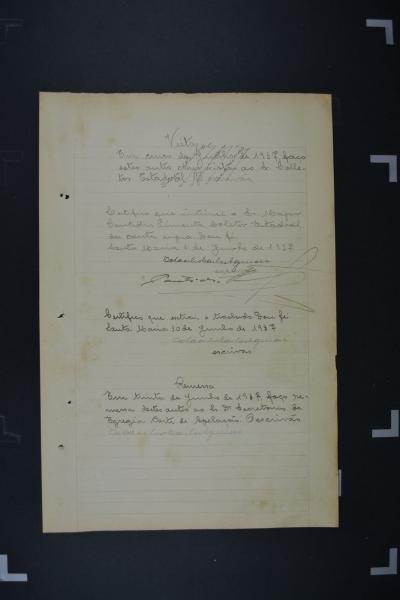 Vista
Em cinco de Junho de 1937, faço
estes autos com vista ao Sr. Colle-
tor Estadual. O escrivão
Certifico que intimei o Sr. Major
Pimenta Coletor Estadual
da conta supra. Dou fé
Santa Maria de Junho de 1937
escrivão
Certifico que extrai o traslado. Dou fé
Santa Maria 10 de Junho de 1937
escrivão
Remessa
Em trinta de Junho de 1937, faço re-
messa destes autos ao Sr. Dr. Secretario da
Egregia Corte de Apelação. O escrivão